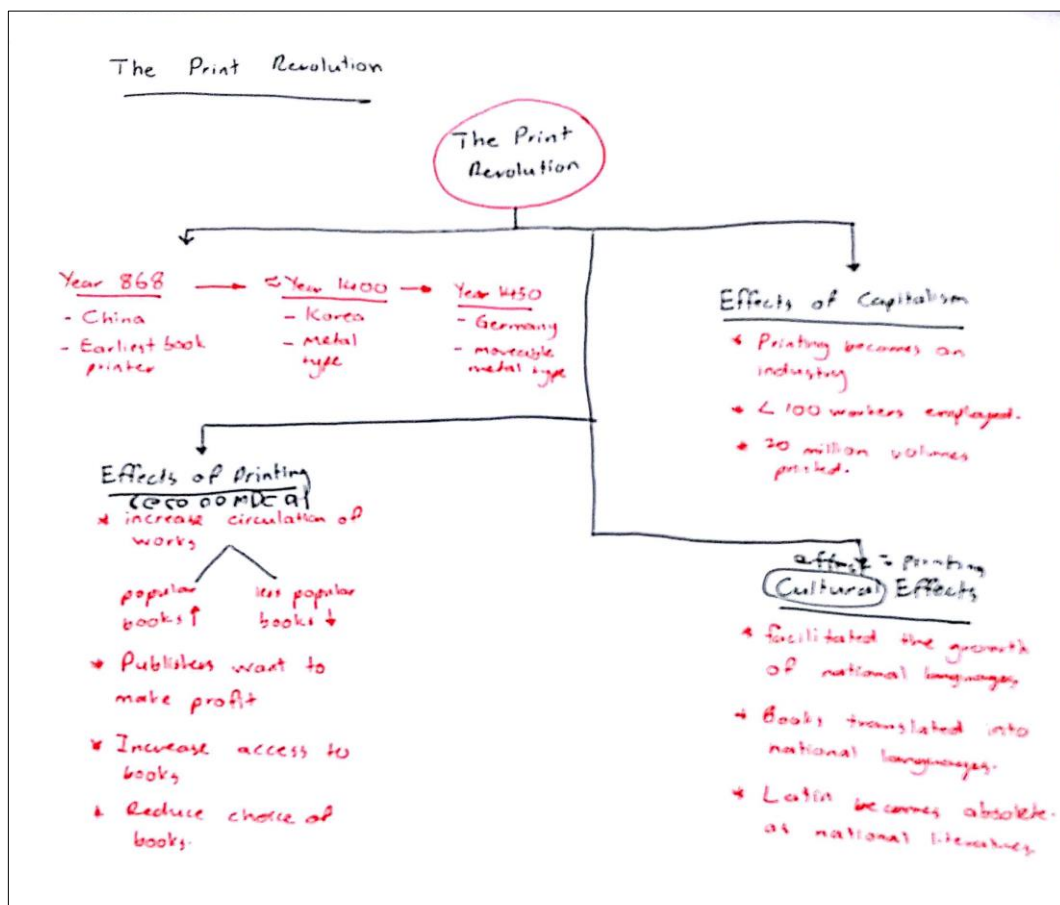 The Print Revolution
The Print
Revolution
Year 868
- China
- Earliest book
printer
≈ Year 1400
- Korea
- Metal
type
Year 1450
- Germany
- moveable
metal type
Effects of Capitalism
* Printing becomes an
industry
* < 100 workers employed.
* 20 million volumes
printed.
Effects of Printing
* increase circulation of
works
popular
books ↑
less popular
books ↓
* Publishers want to
make profit
* Increase access to
books
* Reduce choice of
books.
printing
Cultural Effects
* facilitated the growth
of national languages
* Books translated into
national languages.
* Latin becomes absolete.
as national literatures.